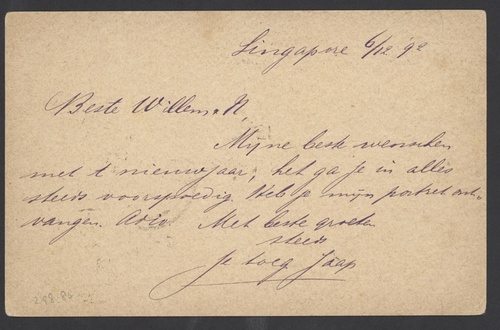 Singapore 6/12 92
Beste Willem & N,
Mijne beste wenschen
met 't nieuwjaar; het ga je in alles
steeds voorspoedig. Heb je mijn portret ont-
vangen. Adio. Met beste groeten
steeds
je toeg Jaap